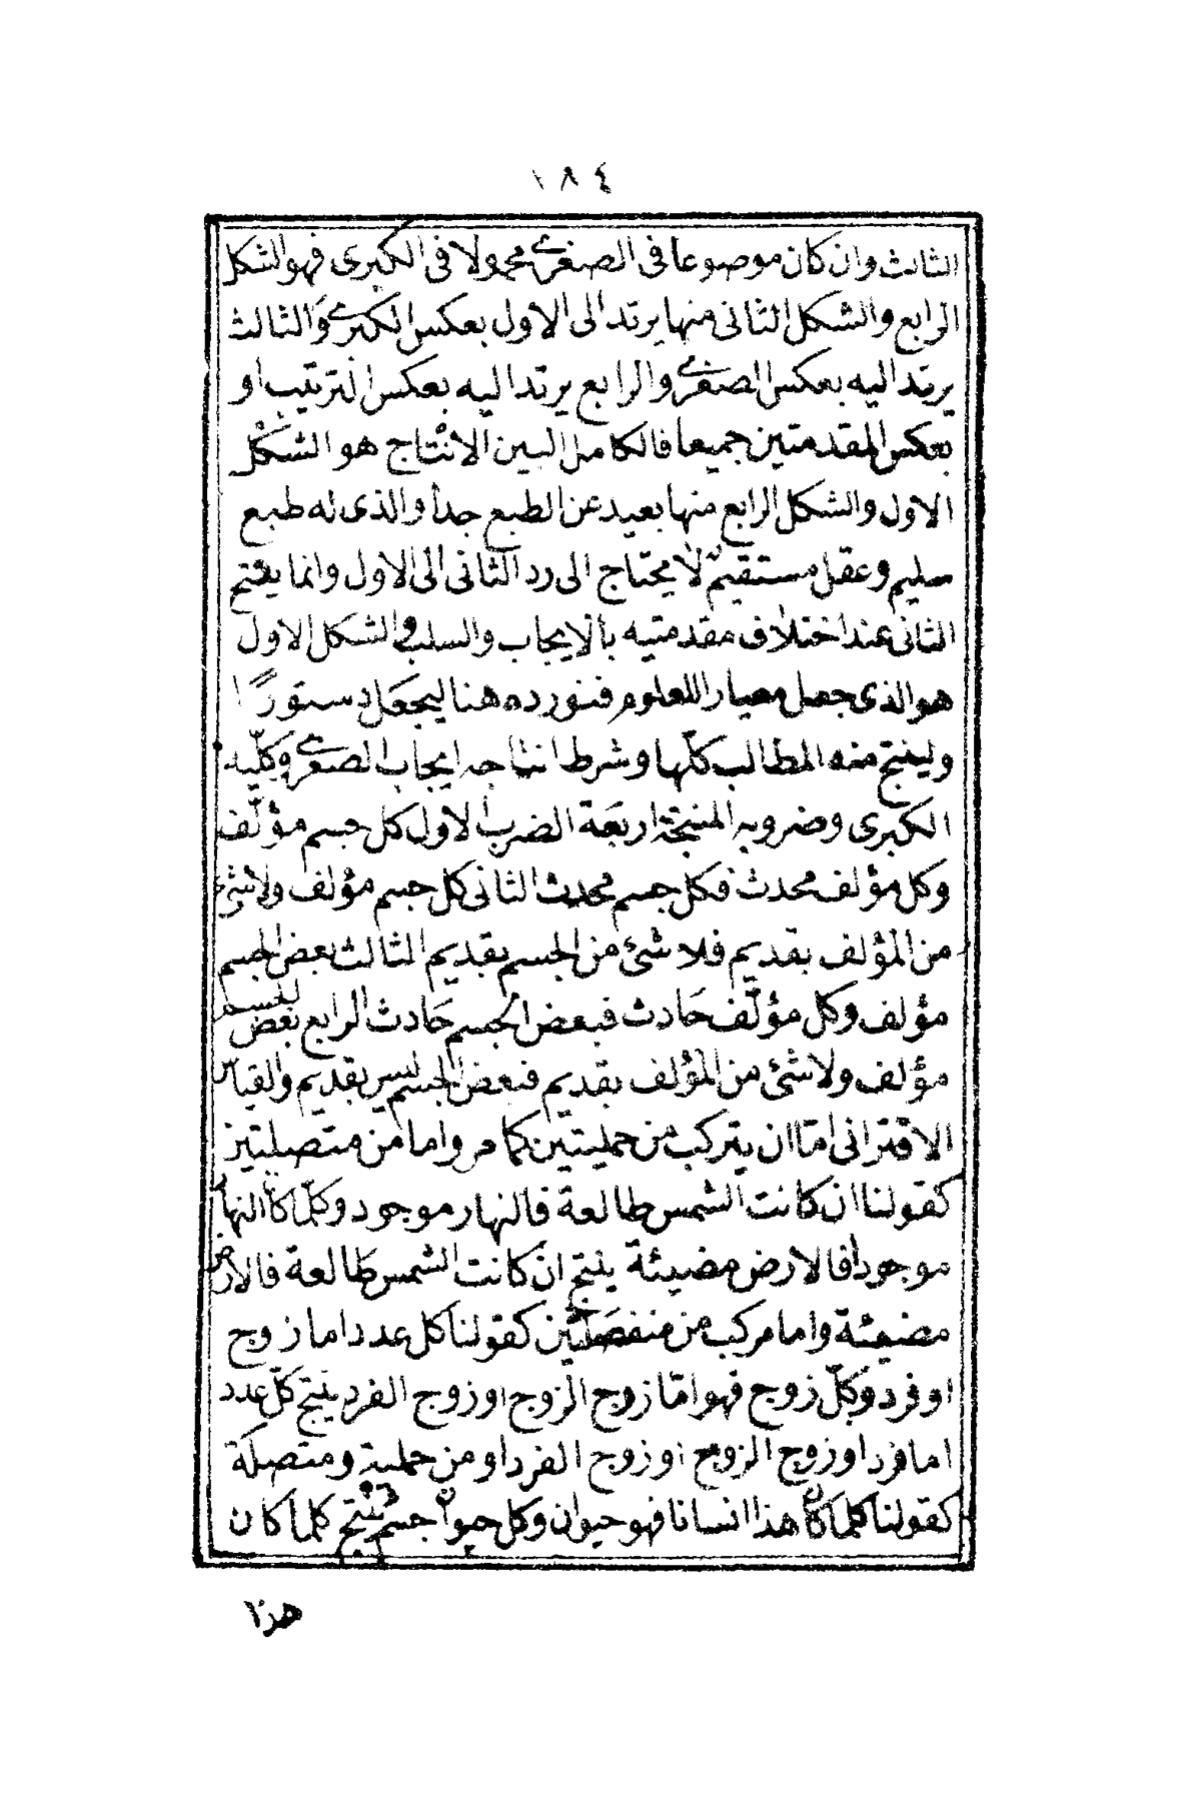 ١٨٤
الثالث وان كان موضوعا فى الصغرى محمولا فى الكبرى فهو الشكل
الرابع والشكل الثانى منها يرتد الى الاول بعكس الكبرى والثالث
يرتد اليه بعكس الصغرى والرابع يرتد اليه بعكس الترتيب او
بعكس المقدمتين جميعا فالكامل البين الانتاج هو الشكل
الاول والشكل الرابع منها بعيد عن الطبع جدا والذى له طبع
سليم وعقل مستقيم لا يحتاج الى رد الثانى الى الاول وانما ينتج
الثانى عند اختلاف مقدمتيه بالايجاب والسلب والشكل الاول
هو الذى جعل معيار اللعلوم فنورده هنا ليجعل دستورًا
ولينتج منه المطالب كلّها وشرط انتاجه ايجاب الصغرى وكلّيه
الكبرى وضروبه المنتجة اربعة الضرب الاول كل جسم مؤلّف
وكل مؤلف محدث فكل جسم محدث الثانى كل جسم مؤلف ولا شئ
من المؤلف بقديم فلا شئ من الجسم بقديم الثالث بعض الجسم
مؤلف وكل مؤلّف حَادث فبعض الجسم حَادث الرابع بعض لجسم
مؤلف ولا شئ من المؤلف بقديم فبعض الجسم ليس بقديم والقياس
الاقترانى امّا ان يتركب من حمليتين كما مر واما من متصلتين
كقولنا ان كانت الشمس طالعة فالنهار موجود وكلّما كان النهار
موجودا فالارض مضيئة ينتج ان كانت الشمس طالعة فالارض
مضيئة واما مركب من منفصلتين كقولنا كل عدد اما زوج
او فرد وكلّ زوج فهو امّا زوج الزوج او زوج الفرد ينتج كلّ عدد
اما فرد او زوج الزوج او زوج الفرد او من حملية ومتصلة
كقولنا كلما كان هذا انسانا فهو حيوان وكل حيوان جسم ينتج كلما كان
هذا